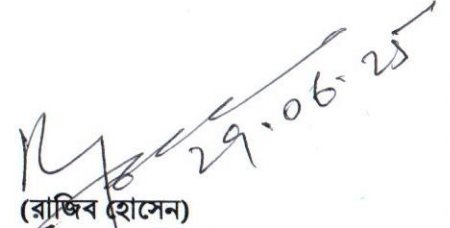 29.06.25
(রাজিব হোসেন)